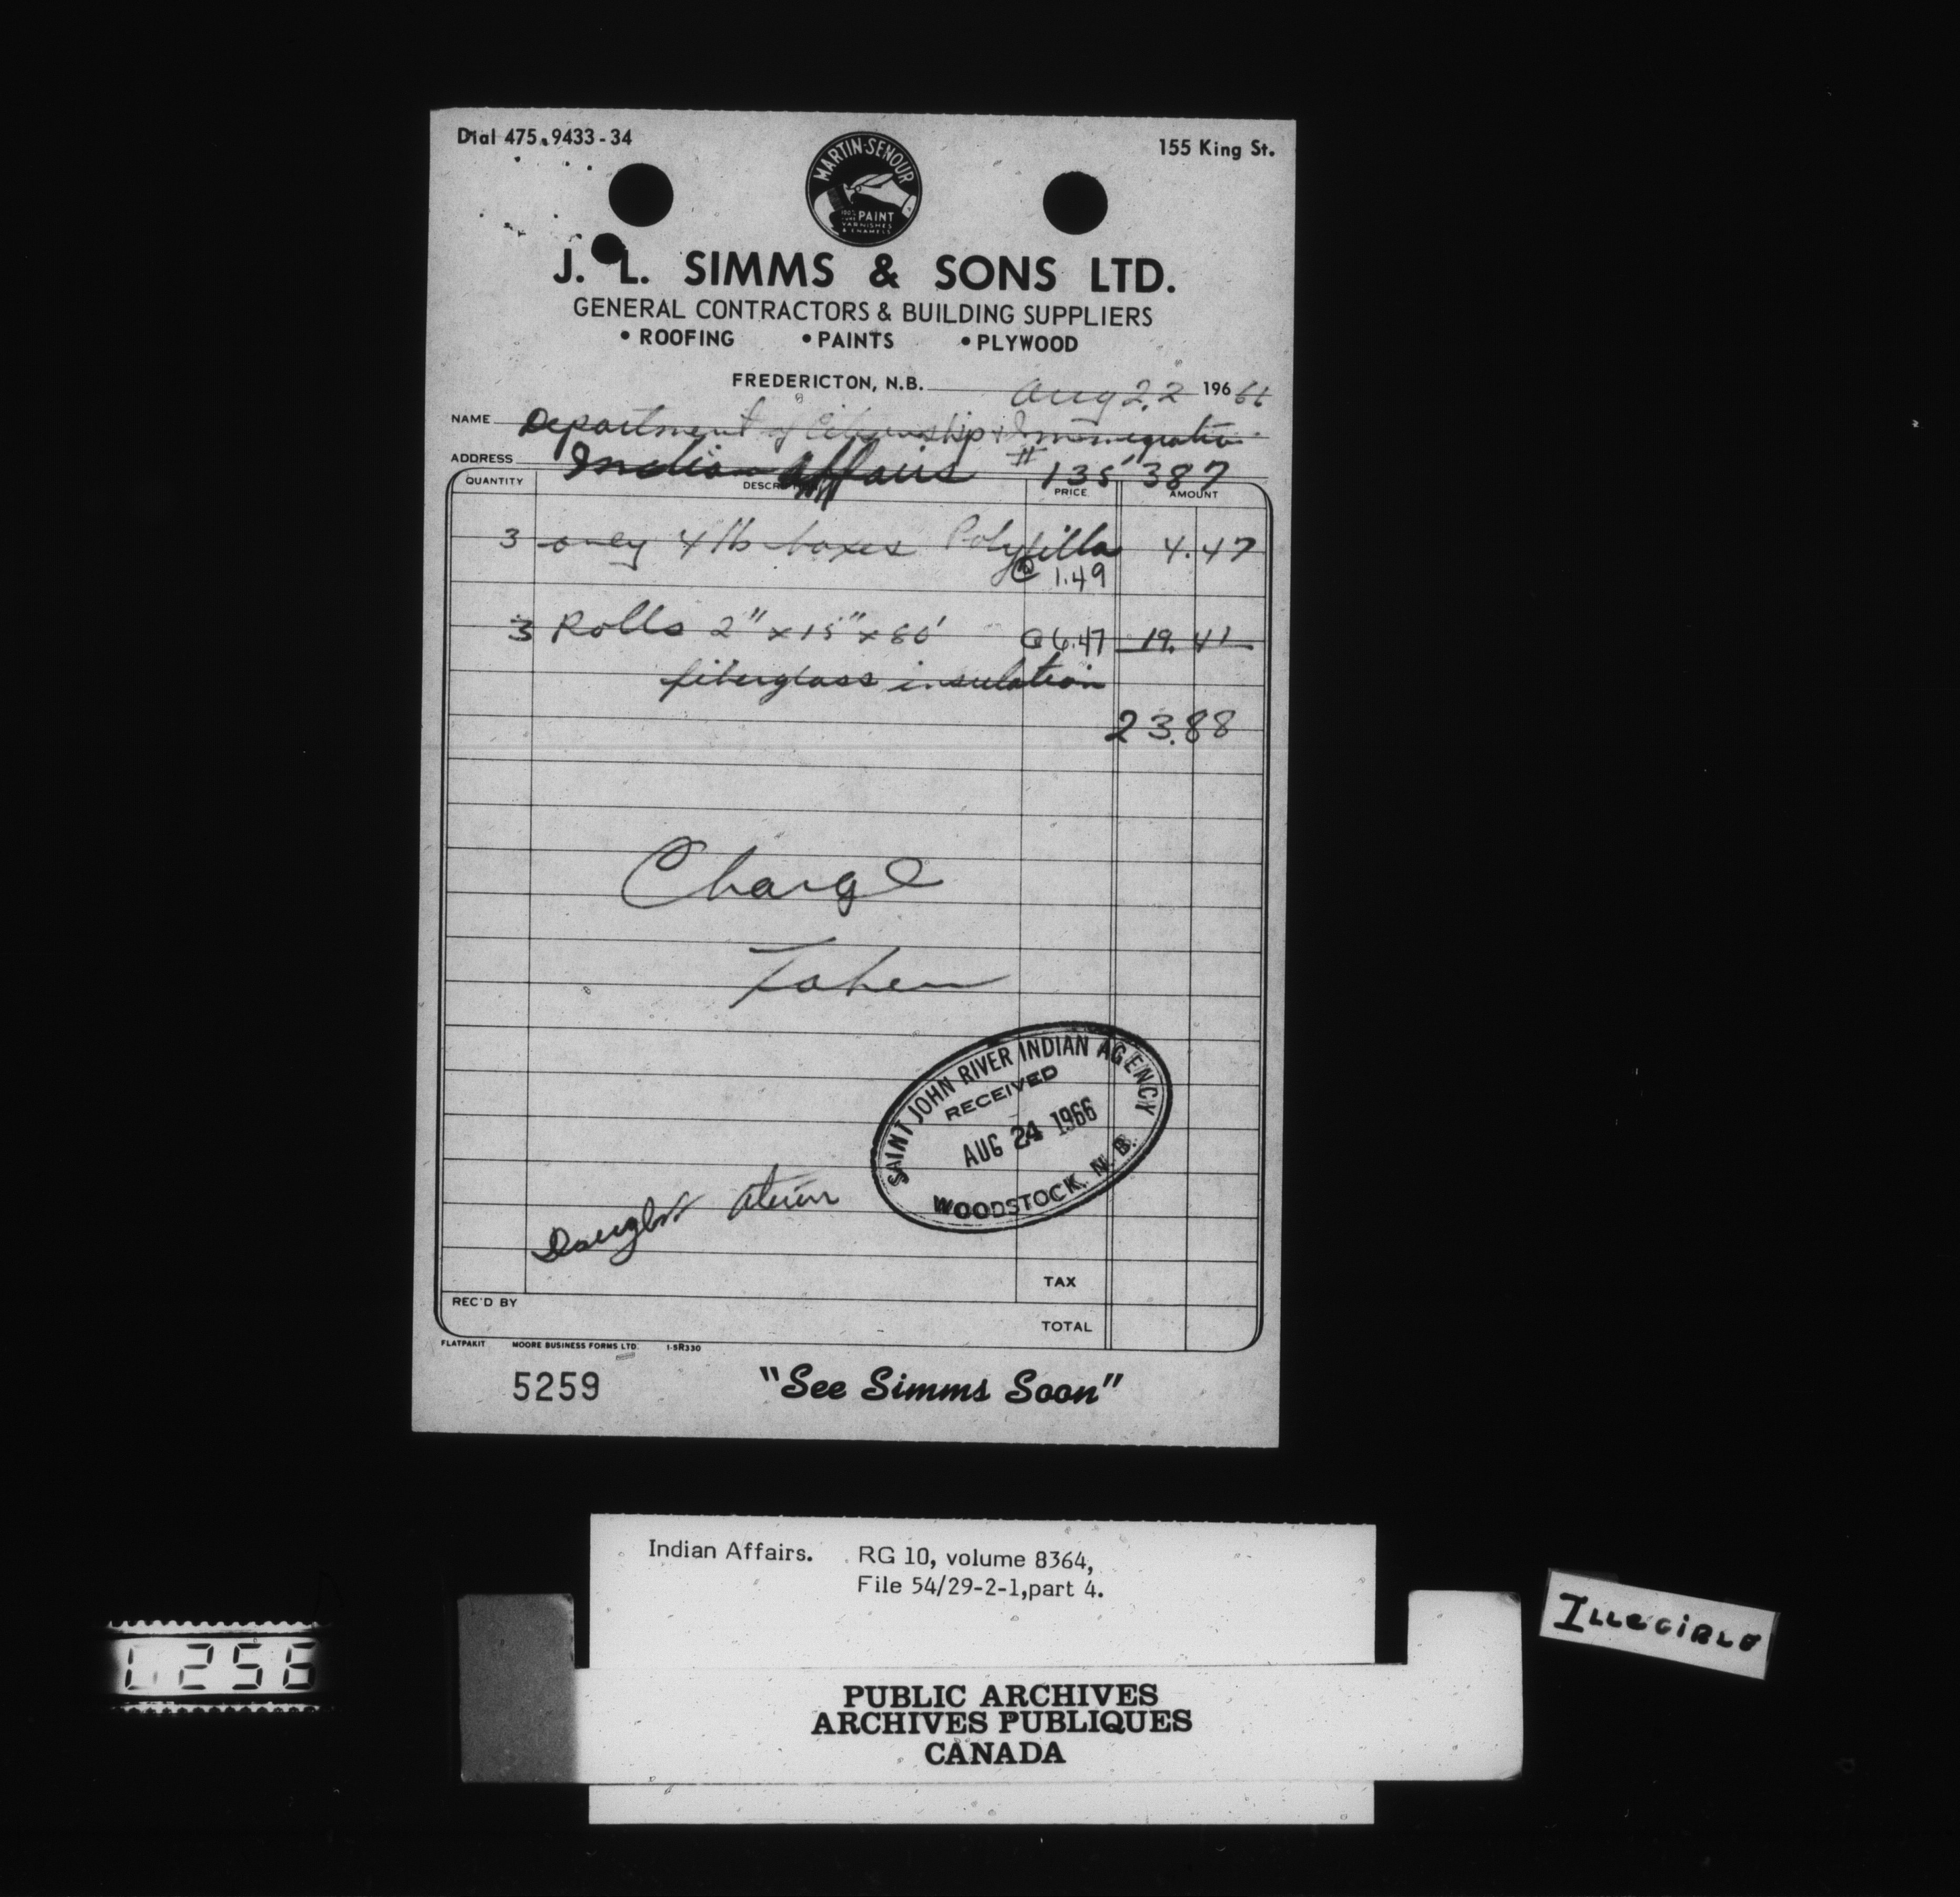 Dial 475-9433-34
155 King St.
MARTIN-SENOUR
100% PURE PAINT
VARNISHES
& ENAMELS
J. L. SIMMS & SONS LTD.
GENERAL CONTRACTORS & BUILDING SUPPLIERS
• ROOFING • PAINTS • PLYWOOD
FREDERICTON, N.B. Aug 22 196 66
NAME Department of Citizenship & Immigration
ADDRESS Indian Affairs # 135387
QUANTITY DESCRIPTION PRICE AMOUNT
3 only 4 lb boxes Polyfilla 4.47
@ 1.49
3 Rolls 2" x 15" x 80' @ 6.47 19.41
fiberglass insulation
23.88
Charge
Taken
SAINT JOHN RIVER INDIAN AGENCY
RECEIVED
AUG 24 1966
WOODSTOCK, N. B.
TAX
REC'D BY
TOTAL
FLATPAKIT MOORE BUSINESS FORMS LTD. 1-SR330
5259
"See Simms Soon"
Indian Affairs. RG 10, volume 8364,
File 54/29-2-1,part 4.
ILLEGIBLE
256
PUBLIC ARCHIVES
ARCHIVES PUBLIQUES
CANADA